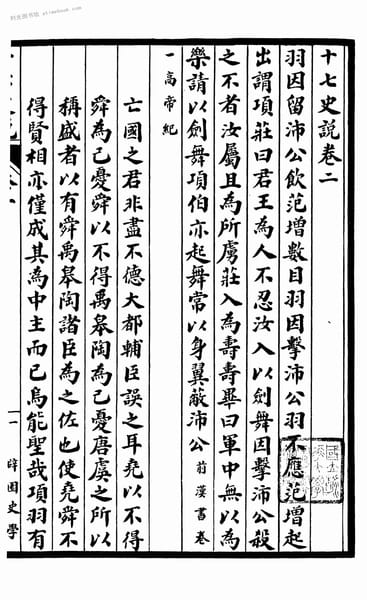 十七史說卷二
羽因留沛公飲范增數目羽因擊沛公羽不應范增起
出謂項莊曰君王為人不忍汝入以劍舞因擊沛公殺
之不者汝屬且為所虜莊入為壽壽畢曰軍中無以為
樂請以劍舞項伯亦起舞常以身翼蔽沛公前漢書卷
一高帝紀
亡國之君非盡不德大都輔臣誤之耳堯以不得
舜為己憂舜以不得禹皋陶為己憂唐虞之所以
稱盛者以有舜禹皋陶諸臣為之佐也使堯舜不
得賢相亦僅成其為中主而已烏能聖哉項羽有